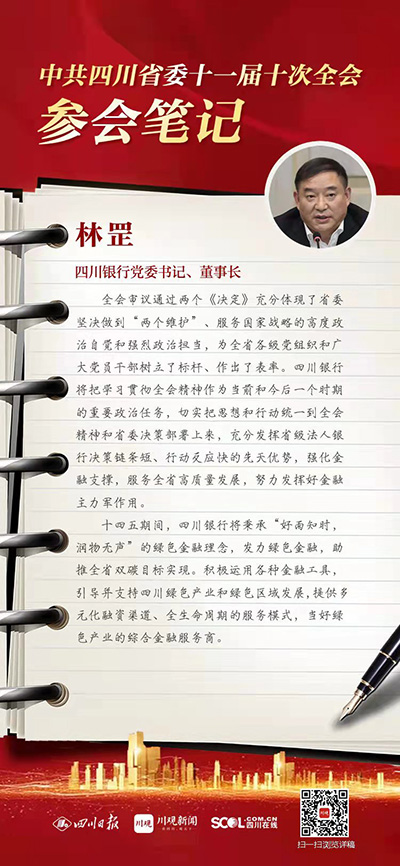 中共四川省委十一届十次全会
参会笔记
林罡
四川银行党委书记、董事长
全会审议通过两个《决定》充分体现了省委
坚决做到“两个维护”、服务国家战略的高度政
治自觉和强烈政治担当，为全省各级党组织和广
大党员干部树立了标杆、作出了表率。四川银行
将把学习贯彻全会精神作为当前和今后一个时期
的重要政治任务，切实把思想和行动统一到全会
精神和省委决策部署上来，充分发挥省级法人银
行决策链条短、行动反应快的先天优势，强化金
融支撑，服务全省高质量发展，努力发挥好金融
主力军作用。
十四五期间，四川银行将秉承“好雨知时，
润物无声”的绿色金融理念，发力绿色金融，助
推全省双碳目标实现。积极运用各种金融工具，
引导并支持四川绿色产业和绿色区域发展，提供多
元化融资渠道、全生命周期的服务模式，当好绿
色产业的综合金融服务商。
四川日报
川观
川观新闻
SCOL.COM.CN
四川在线
扫一扫浏览详稿